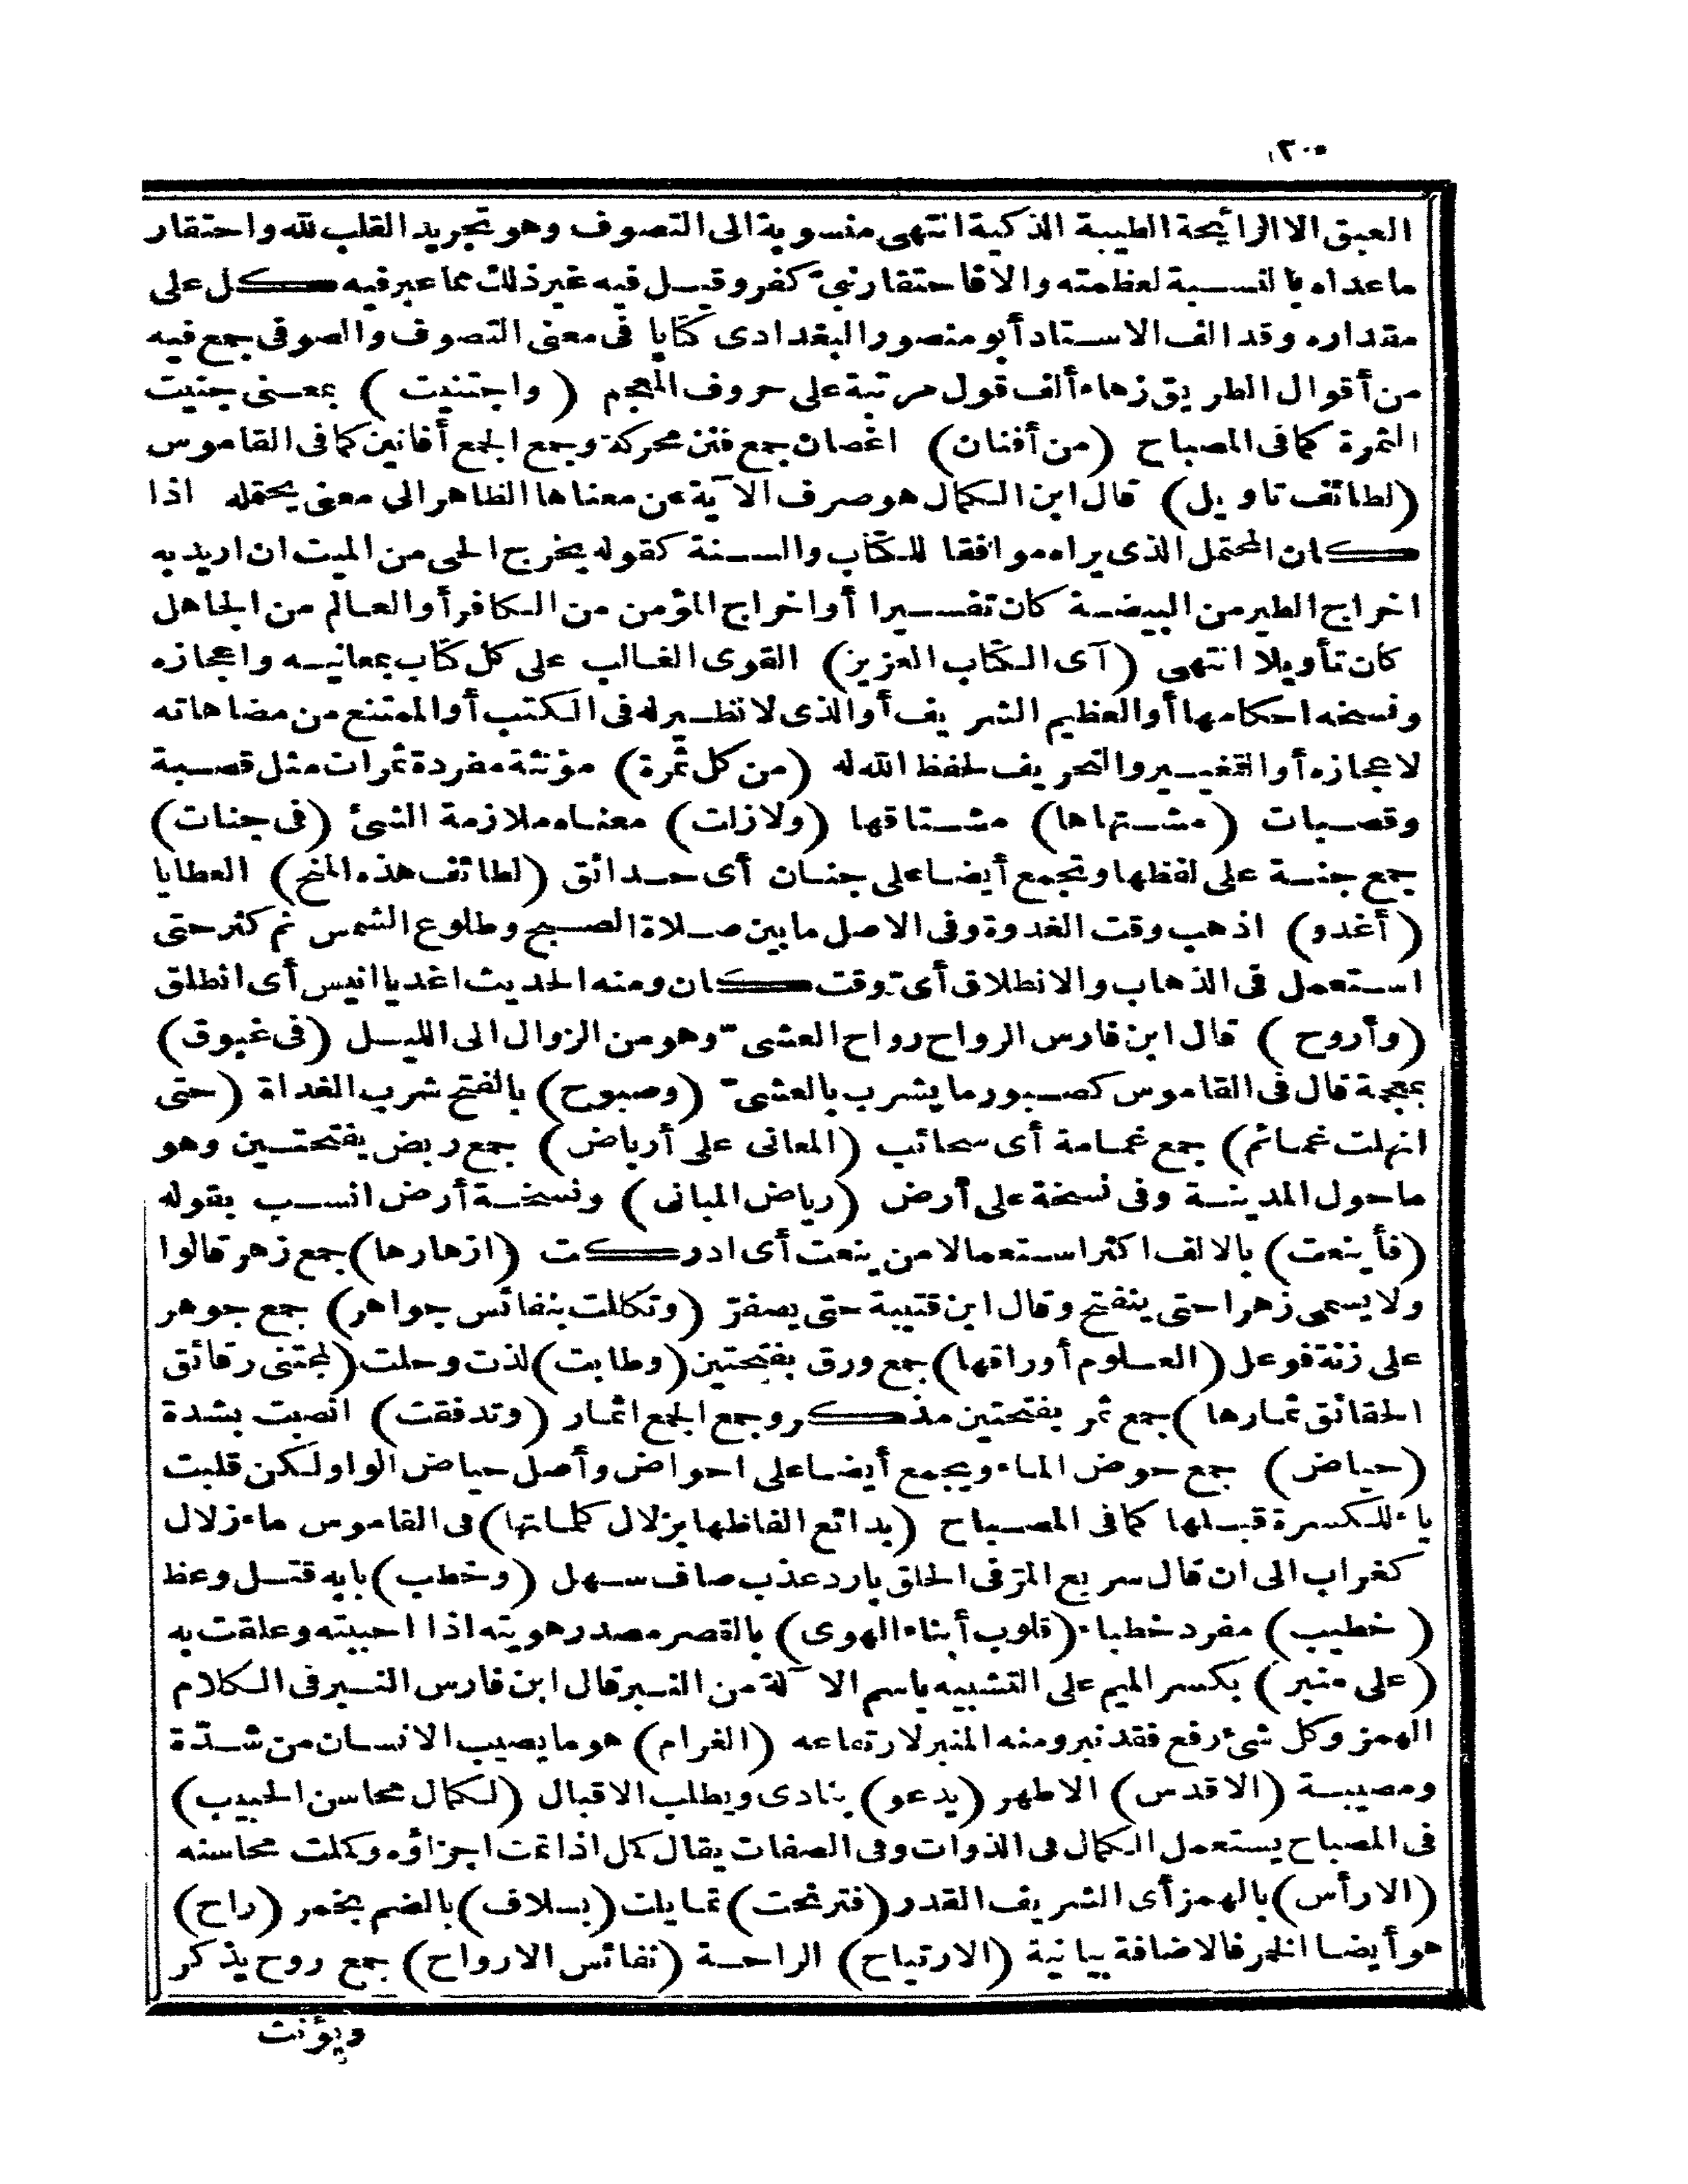 ٣٠
العبق الا الرائحة الطيبة الذكية انتهى منسوبة الى التصوف وهو تجريد القلب لله واحتقار
ما عداه بالنسبة لعظمته والا فاحتقار نبىّ كفر وقيل فيه غير ذلك مما عبر فيه كل على
مقداره وقد الف الاستاد أبو منصور البغدادى كتابا فى معنى التصوف والصوفى جمع فيه
من أقوال الطريق زهاء ألف قول مرتبة على حروف المعجم (واجتنيت) بمعنى جنيت
الثمرة كما فى المصباح (من أفنان) اغصان جمع فنن محركة وجمع الجمع أفانين كما فى القاموس
(لطائف تاويل) قال ابن الكمال هو صرف الآية عن معناها الظاهر الى معنى يحتمله اذا
كان المحتمل الذى يراه موافقا للكتاب والسنة كقوله يخرج الحى من الميت ان اريد به
اخراج الطير من البيضة كان تفسيرا أو اخراج المؤمن من الكافر أو العالم من الجاهل
كان تأويلا انتهى (آى الكتاب العزيز) القوى الغالب على كل كتاب بمعانيه واعجازه
ونسخه احكامها أو العظيم الشريف أو الذى لا نظير له فى الكتب أو الممتنع من مضاهاته
لاعجازه أو التغيير والتحريف لحفظ الله له (من كل ثمرة) مؤنثة مفردة ثمرات مثل قصبة
وقصبات (مشتهاها) مشتاقها (ولازلت) معناه ملازمة الشئ (فى جنات)
جمع جنة على لفظها وتجمع أيضا على جنان أى حدائق (لطائف هذه المنح) العطايا
(أغدو) اذهب وقت الغدوة وفى الاصل ما بين صلاة الصبح وطلوع الشمس ثم كثر حتى
استعمل فى الذهاب والانطلاق أىّ وقت كان ومنه الحديث اغد يا انيس أى انطلق
(وأروح) قال ابن فارس الرواح رواح العشىّ وهو من الزوال الى الليل (فى غبوق)
بمعجمة قال فى القاموس كصبور ما يشرب بالعشىّ (وصبوح) بالفتح شرب الغداة (حتى
انهلت غمائم) جمع غمامة أى سحائب (المعانى على أرباض) جمع ربض بفتحتين وهو
ما حول المدينة وفى نسخة على أرض (رياض المبانى) ونسخة أرض انسب بقوله
(فأينعت) بالالف اكثر استعمالا من ينعت أى ادركت (ازهارها) جمع زهر قالوا
ولا يسمى زهرا حتى يتفتح وقال ابن قتيبة حتى يصفرّ (وتكللت بنفائس جواهر) جمع جوهر
على زنة فوعل (العلوم أوراقها) جمع ورق بفتحتين (وطابت) لذت وحلت (لمجتنى رقائق
الحقائق ثمارها) جمع ثمر بفتحتين مذكر وجمع الجمع اثمار (وتدفقت) انصبت بشدة
(حياض) جمع حوض الماء ويجمع أيضا على احواض وأصل حياض الواو لكن قلبت
ياء للكسرة قبلها كما فى المصباح (بدائع الفاظها بزلال كلماتها) فى القاموس ماء زلال
كغراب الى ان قال سريع المرّ فى الحلق بارد عذب صاف سهل (وخطب) بابه قتل وعظ
(خطيب) مفرد خطباء (قلوب أبناء الهوى) بالقصر مصدر هويته اذا احببته وعلقت به
(على منبر) بكسر الميم على التشبيه باسم الآلة من النبر قال ابن فارس النبر فى الكلام
الهمز وكل شئ رفع فقد نبر ومنه المنبر لارتفاعه (الغرام) هو ما يصيب الانسان من شدّة
ومصيبة (الاقدس) الاطهر (يدعو) ينادى ويطلب الاقبال (لكمال محاسن الحبيب)
فى المصباح يستعمل الكمال فى الذوات وفى الصفات يقال كمل اذا تمت اجزاؤه وكملت محاسنه
(الارأس) بالهمز أى الشريف القدر (فترنحت) تمايلت (بسلاف) بالضم بخمر (راح)
هو أيضا الخمر فالاضافة بيانية (الارتياح) الراحة (نفائس الارواح) جمع روح يذكر
ويؤنث